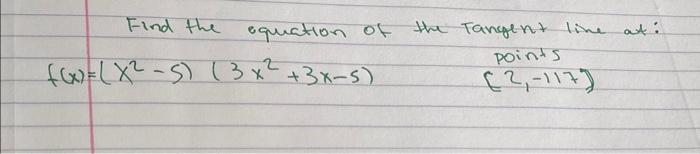 Find the equation of the Tangent line at:
points
f(x)=(x² -5) (3x² +3x-5) (2,-117)